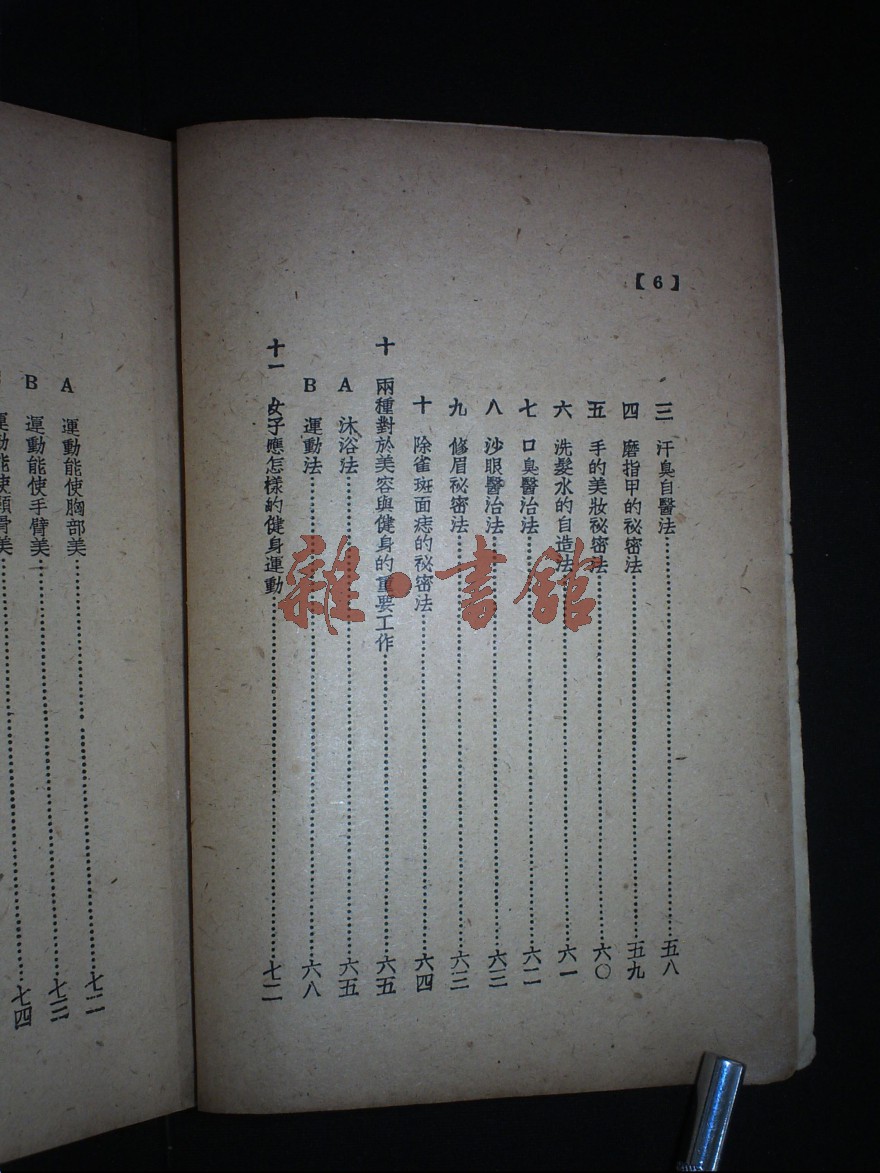 【6】
三 汗臭自醫法 五八
四 磨指甲的祕密法 五九
五 手的美妝祕密法 六〇
六 洗髮水的自造法 六一
七 口臭醫治法 六二
八 沙眼醫治法 六三
九 修眉祕密法 六三
十 除雀斑面痣的祕密法 六四
十 兩種對於美容與健身的重要工作 六五
A 沐浴法 六五
B 運動法 六八
十一 女子應怎樣的健身運動 七二
A 運動能使胸部美 七二
B 運動能使手臂美 七三
運動能使頸骨美 七四
雜·書館